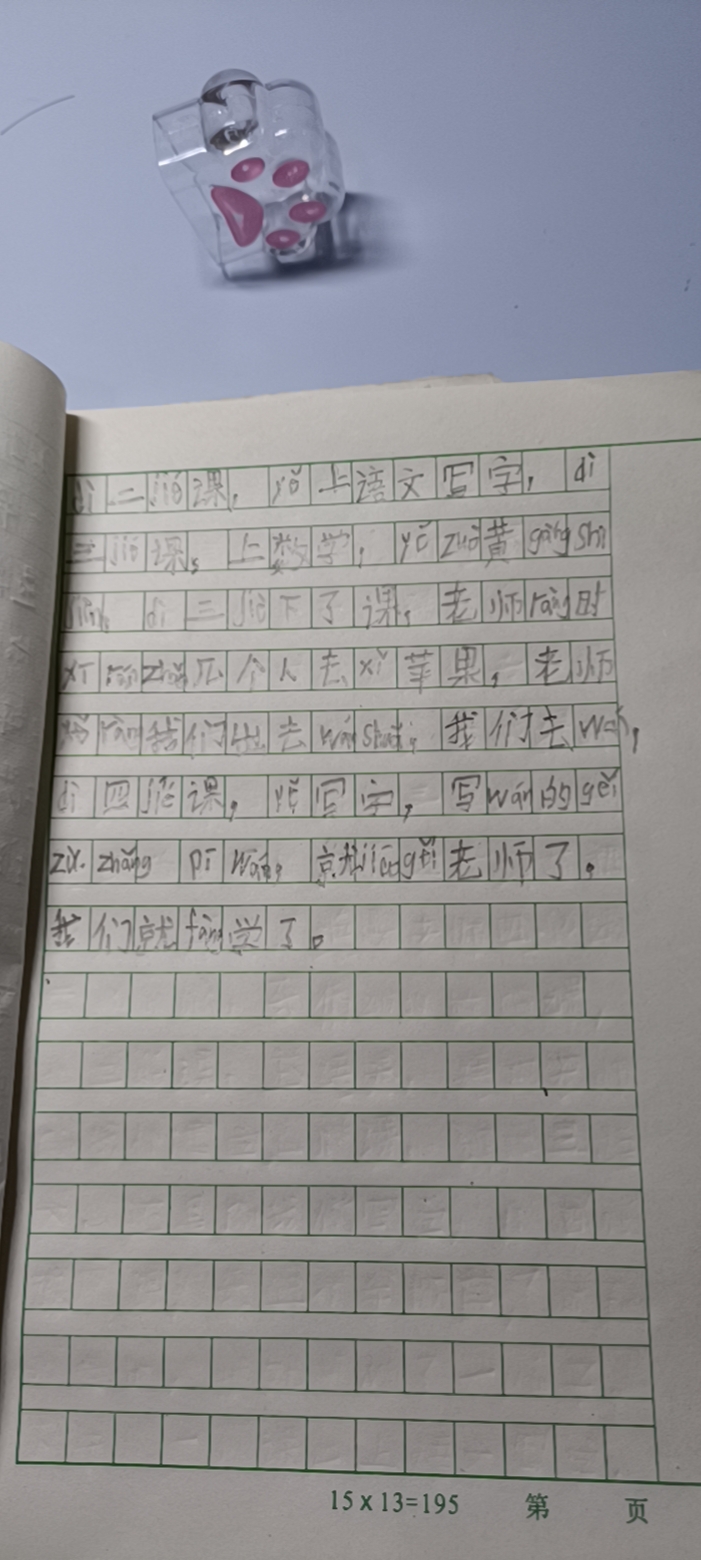 dì二jié课，yǒ上语文写字，dì
三jié课，上数学，yě zuò黄gāng
dì三jié下了课，老师ràng
几个人去xǐ苹果，老师
ràng我们出去wán shuǎ，我们去wán，
dì四jié课，yě写字，写wán的gěi
zǔ zhǎng pī wán，就jiāo gěi老师了。
我们就fàng学了。
15×13=195 第 页